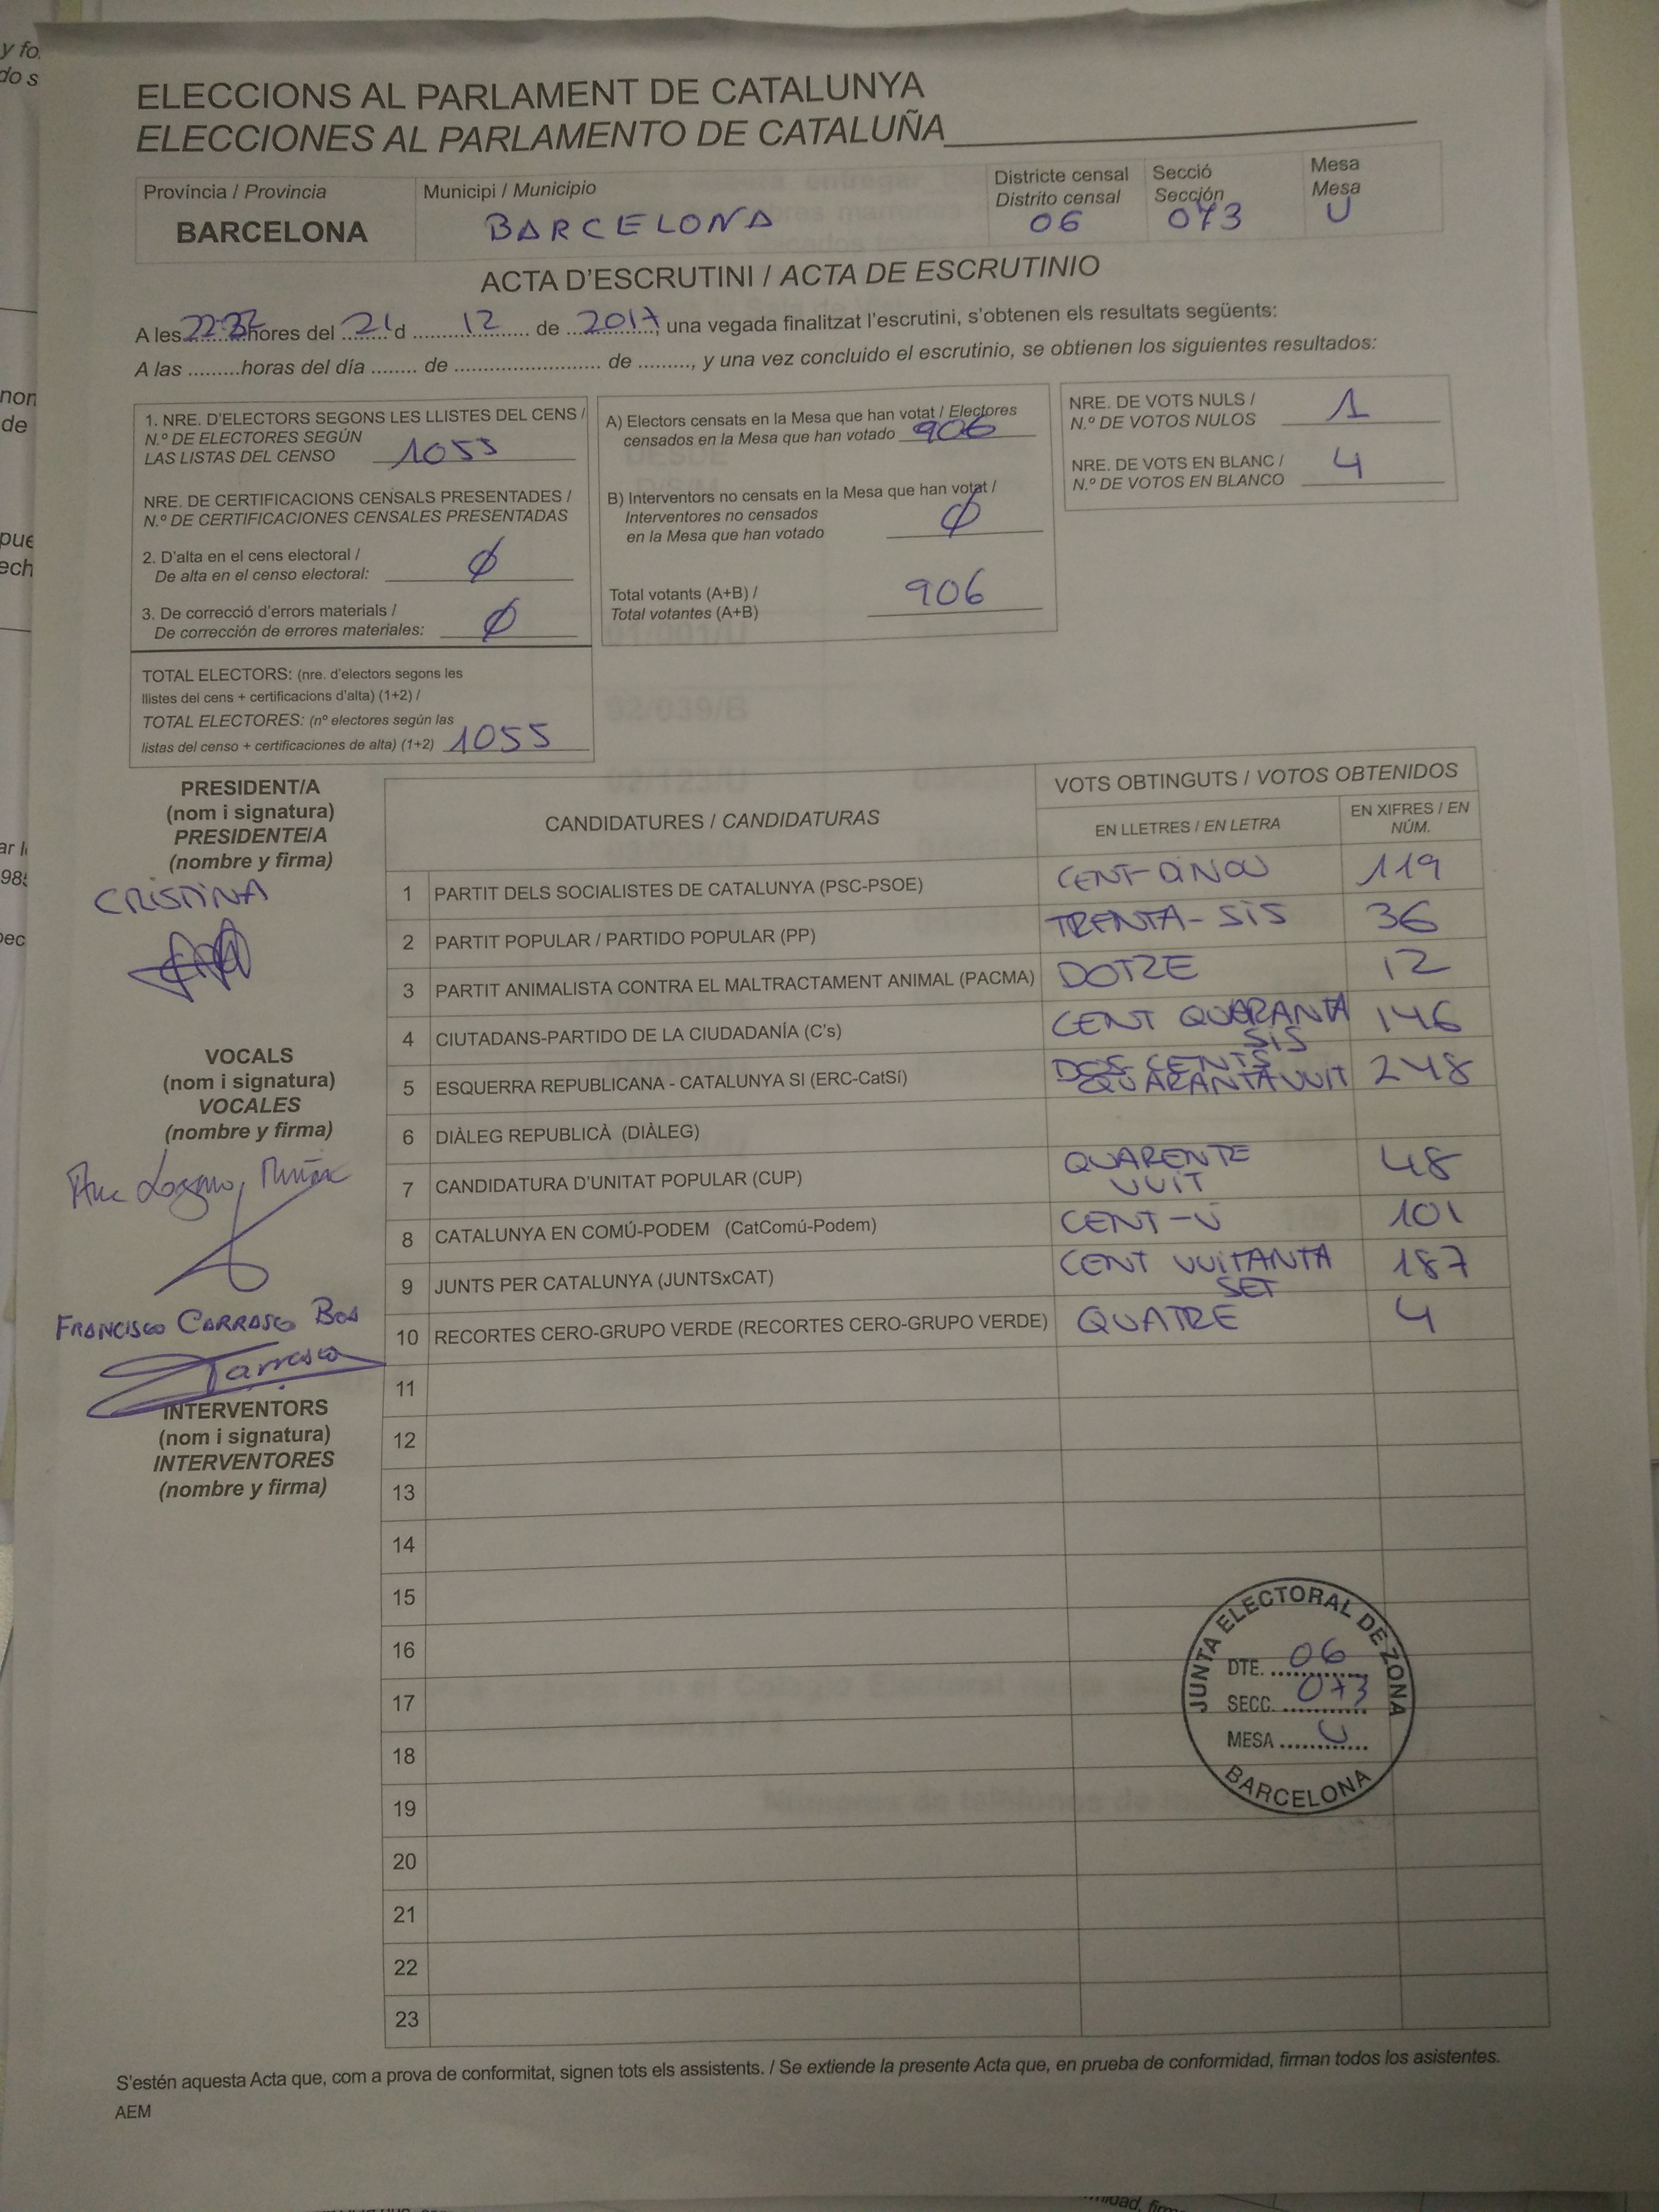 ELECCIONS AL PARLAMENT DE CATALUNYA
ELECCIONES AL PARLAMENTO DE CATALUÑA
Província / Provincia
BARCELONA
Municipi / Municipio
BARCELONA
Districte censal
Distrito censal
06
Secció
Sección
073
Mesa
Mesa
U
ACTA D'ESCRUTINI / ACTA DE ESCRUTINIO
A les 22:37 hores del 21 d 12 de 2017, una vegada finalitzat l'escrutini, s'obtenen els resultats següents:
A las .........horas del día ........ de ......................... de ........., y una vez concluido el escrutinio, se obtienen los siguientes resultados:
1. NRE. D'ELECTORS SEGONS LES LLISTES DEL CENS /
N.º DE ELECTORES SEGÚN
LAS LISTAS DEL CENSO 1055
NRE. DE CERTIFICACIONS CENSALS PRESENTADES /
N.º DE CERTIFICACIONES CENSALES PRESENTADAS
2. D'alta en el cens electoral /
De alta en el censo electoral: Ø
3. De correcció d'errors materials /
De corrección de errores materiales: Ø
TOTAL ELECTORS: (nre. d'electors segons les
llistes del cens + certificacions d'alta) (1+2) /
TOTAL ELECTORES: (nº electores según las
listas del censo + certificaciones de alta) (1+2) 1055
A) Electors censats en la Mesa que han votat / Electores
censados en la Mesa que han votado 906
B) Interventors no censats en la Mesa que han votat /
Interventores no censados
en la Mesa que han votado Ø
Total votants (A+B) /
Total votantes (A+B) 906
NRE. DE VOTS NULS /
N.º DE VOTOS NULOS 1
NRE. DE VOTS EN BLANC /
N.º DE VOTOS EN BLANCO 4
PRESIDENT/A
(nom i signatura)
PRESIDENTE/A
(nombre y firma)
CRISTINA
VOCALS
(nom i signatura)
VOCALES
(nombre y firma)
FRANCISCO CARRASCO
Carrasco
INTERVENTORS
(nom i signatura)
INTERVENTORES
(nombre y firma)
CANDIDATURES / CANDIDATURAS
VOTS OBTINGUTS / VOTOS OBTENIDOS
EN LLETRES / EN LETRA
EN XIFRES / EN
NÚM.
1 PARTIT DELS SOCIALISTES DE CATALUNYA (PSC-PSOE) CENT-DINOU 119
2 PARTIT POPULAR / PARTIDO POPULAR (PP) TRENTA-SIS 36
3 PARTIT ANIMALISTA CONTRA EL MALTRACTAMENT ANIMAL (PACMA) DOTZE 12
4 CIUTADANS-PARTIDO DE LA CIUDADANÍA (C's) CENT QUARANTA 146
SIS
5 ESQUERRA REPUBLICANA - CATALUNYA SI (ERC-CatSí) DOS CENTS
QUARANTAVUIT 248
6 DIÀLEG REPUBLICÀ (DIÀLEG)
7 CANDIDATURA D'UNITAT POPULAR (CUP) QUARENTE 48
VUIT
8 CATALUNYA EN COMÚ-PODEM (CatComú-Podem) CENT-U 101
9 JUNTS PER CATALUNYA (JUNTSxCAT) CENT VUITANTA 187
SET
10 RECORTES CERO-GRUPO VERDE (RECORTES CERO-GRUPO VERDE) QUATRE 4
11
12
13
14
15
16
17
18
19
20
21
22
23
JUNTA ELECTORAL DE ZONA
DTE. 06
SECC. 073
MESA U
BARCELONA
S'estén aquesta Acta que, com a prova de conformitat, signen tots els assistents. / Se extiende la presente Acta que, en prueba de conformidad, firman todos los asistentes.
AEM